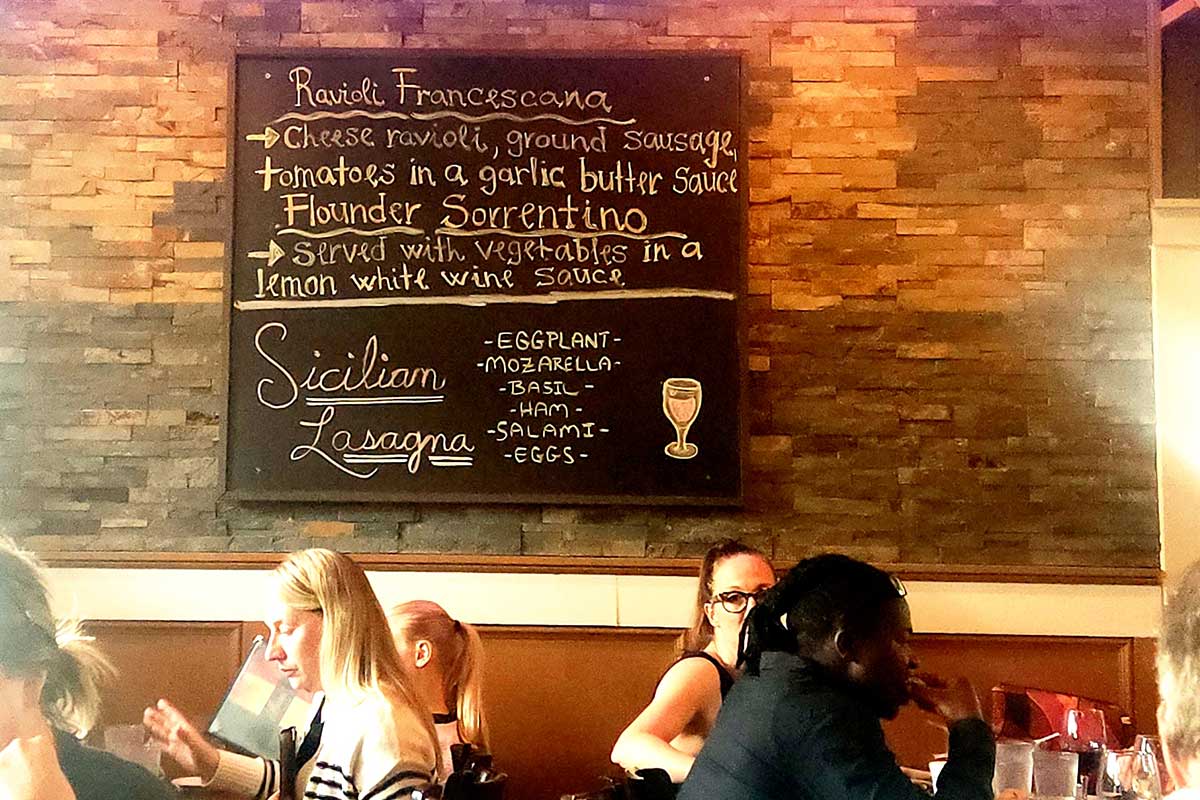 Ravioli Francescana
Cheese ravioli, ground sausage,
tomatoes in a garlic butter sauce
Flounder Sorrentino
Served with vegetables in a
lemon white wine sauce
Sicilian
Lasagna
-EGGPLANT-
-MOZARELLA-
-BASIL-
-HAM-
-SALAMI-
-EGGS-